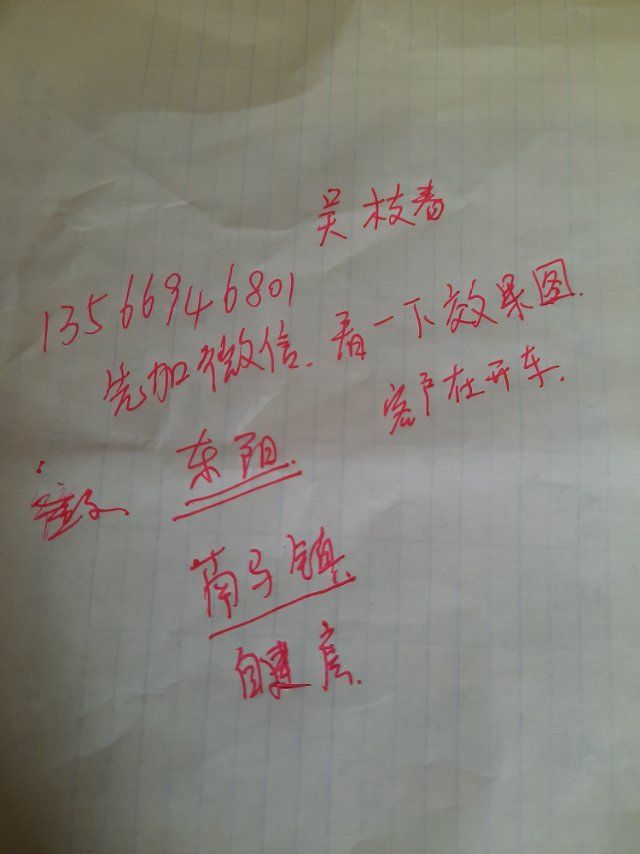 吴枝春
13566946801
先加微信.看一下效果图.
客户在开车.
东阳.
南马镇
自建房.